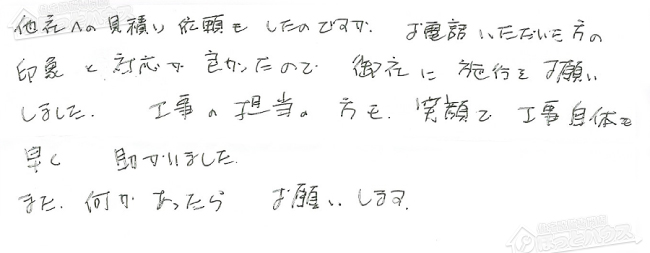 他社への見積り依頼もしたのですが、お電話いただいた方の
印象と対応が良かったので御社に施行をお願い
しました。工事の担当の方も、笑顔で工事自体も
早く助かりました
また、何かあったらお願いします。